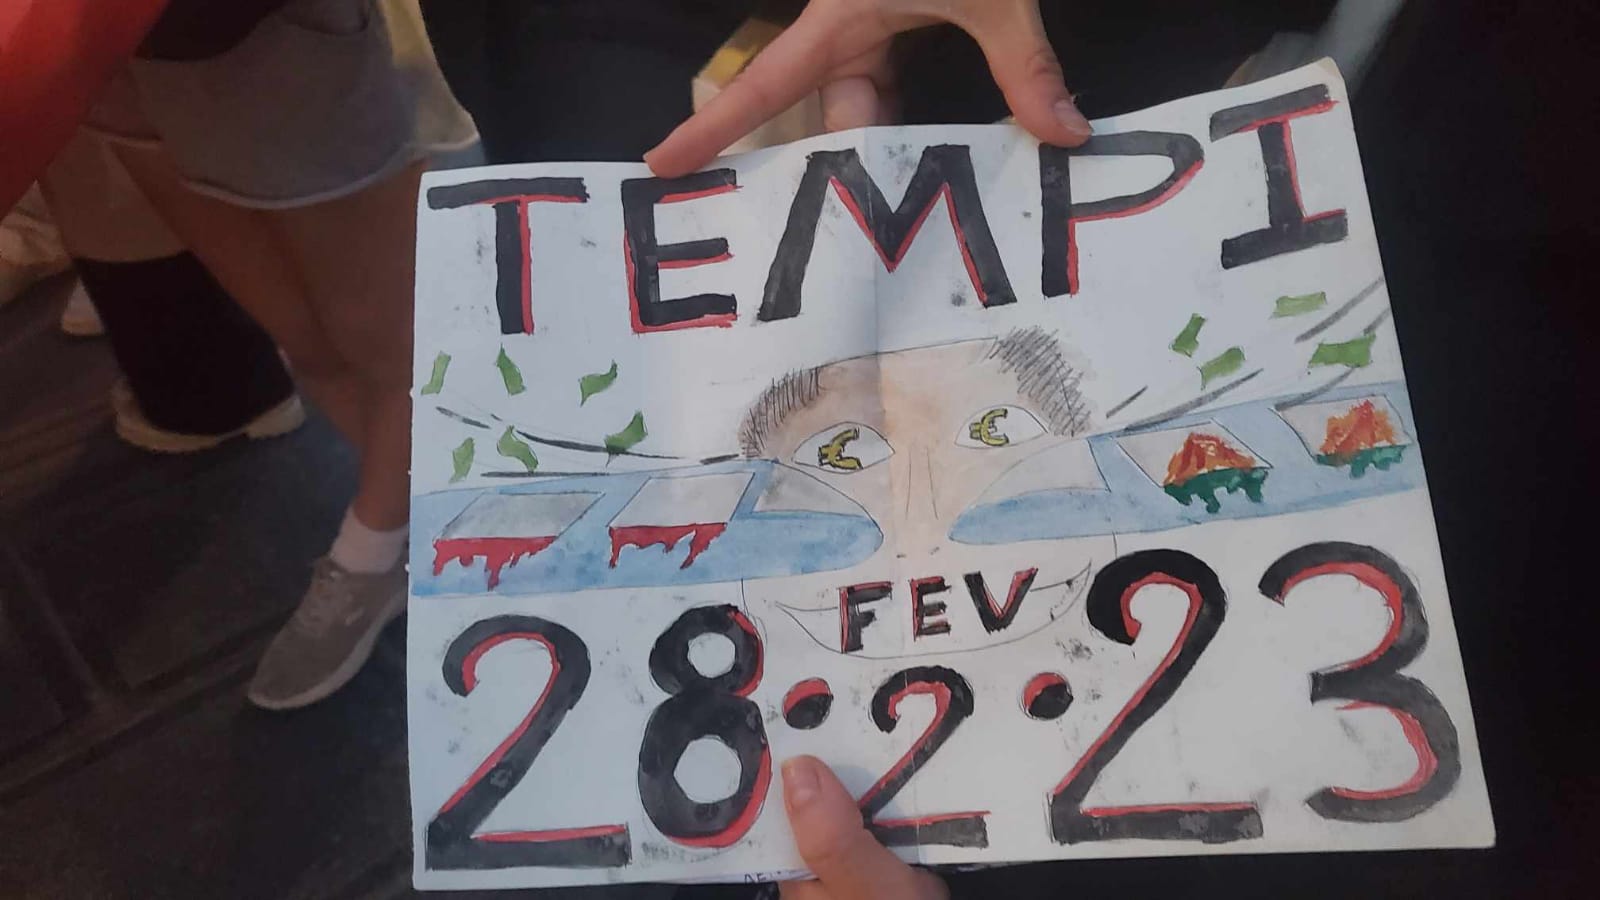 TEMPI
€ €
FEV
28•2•23